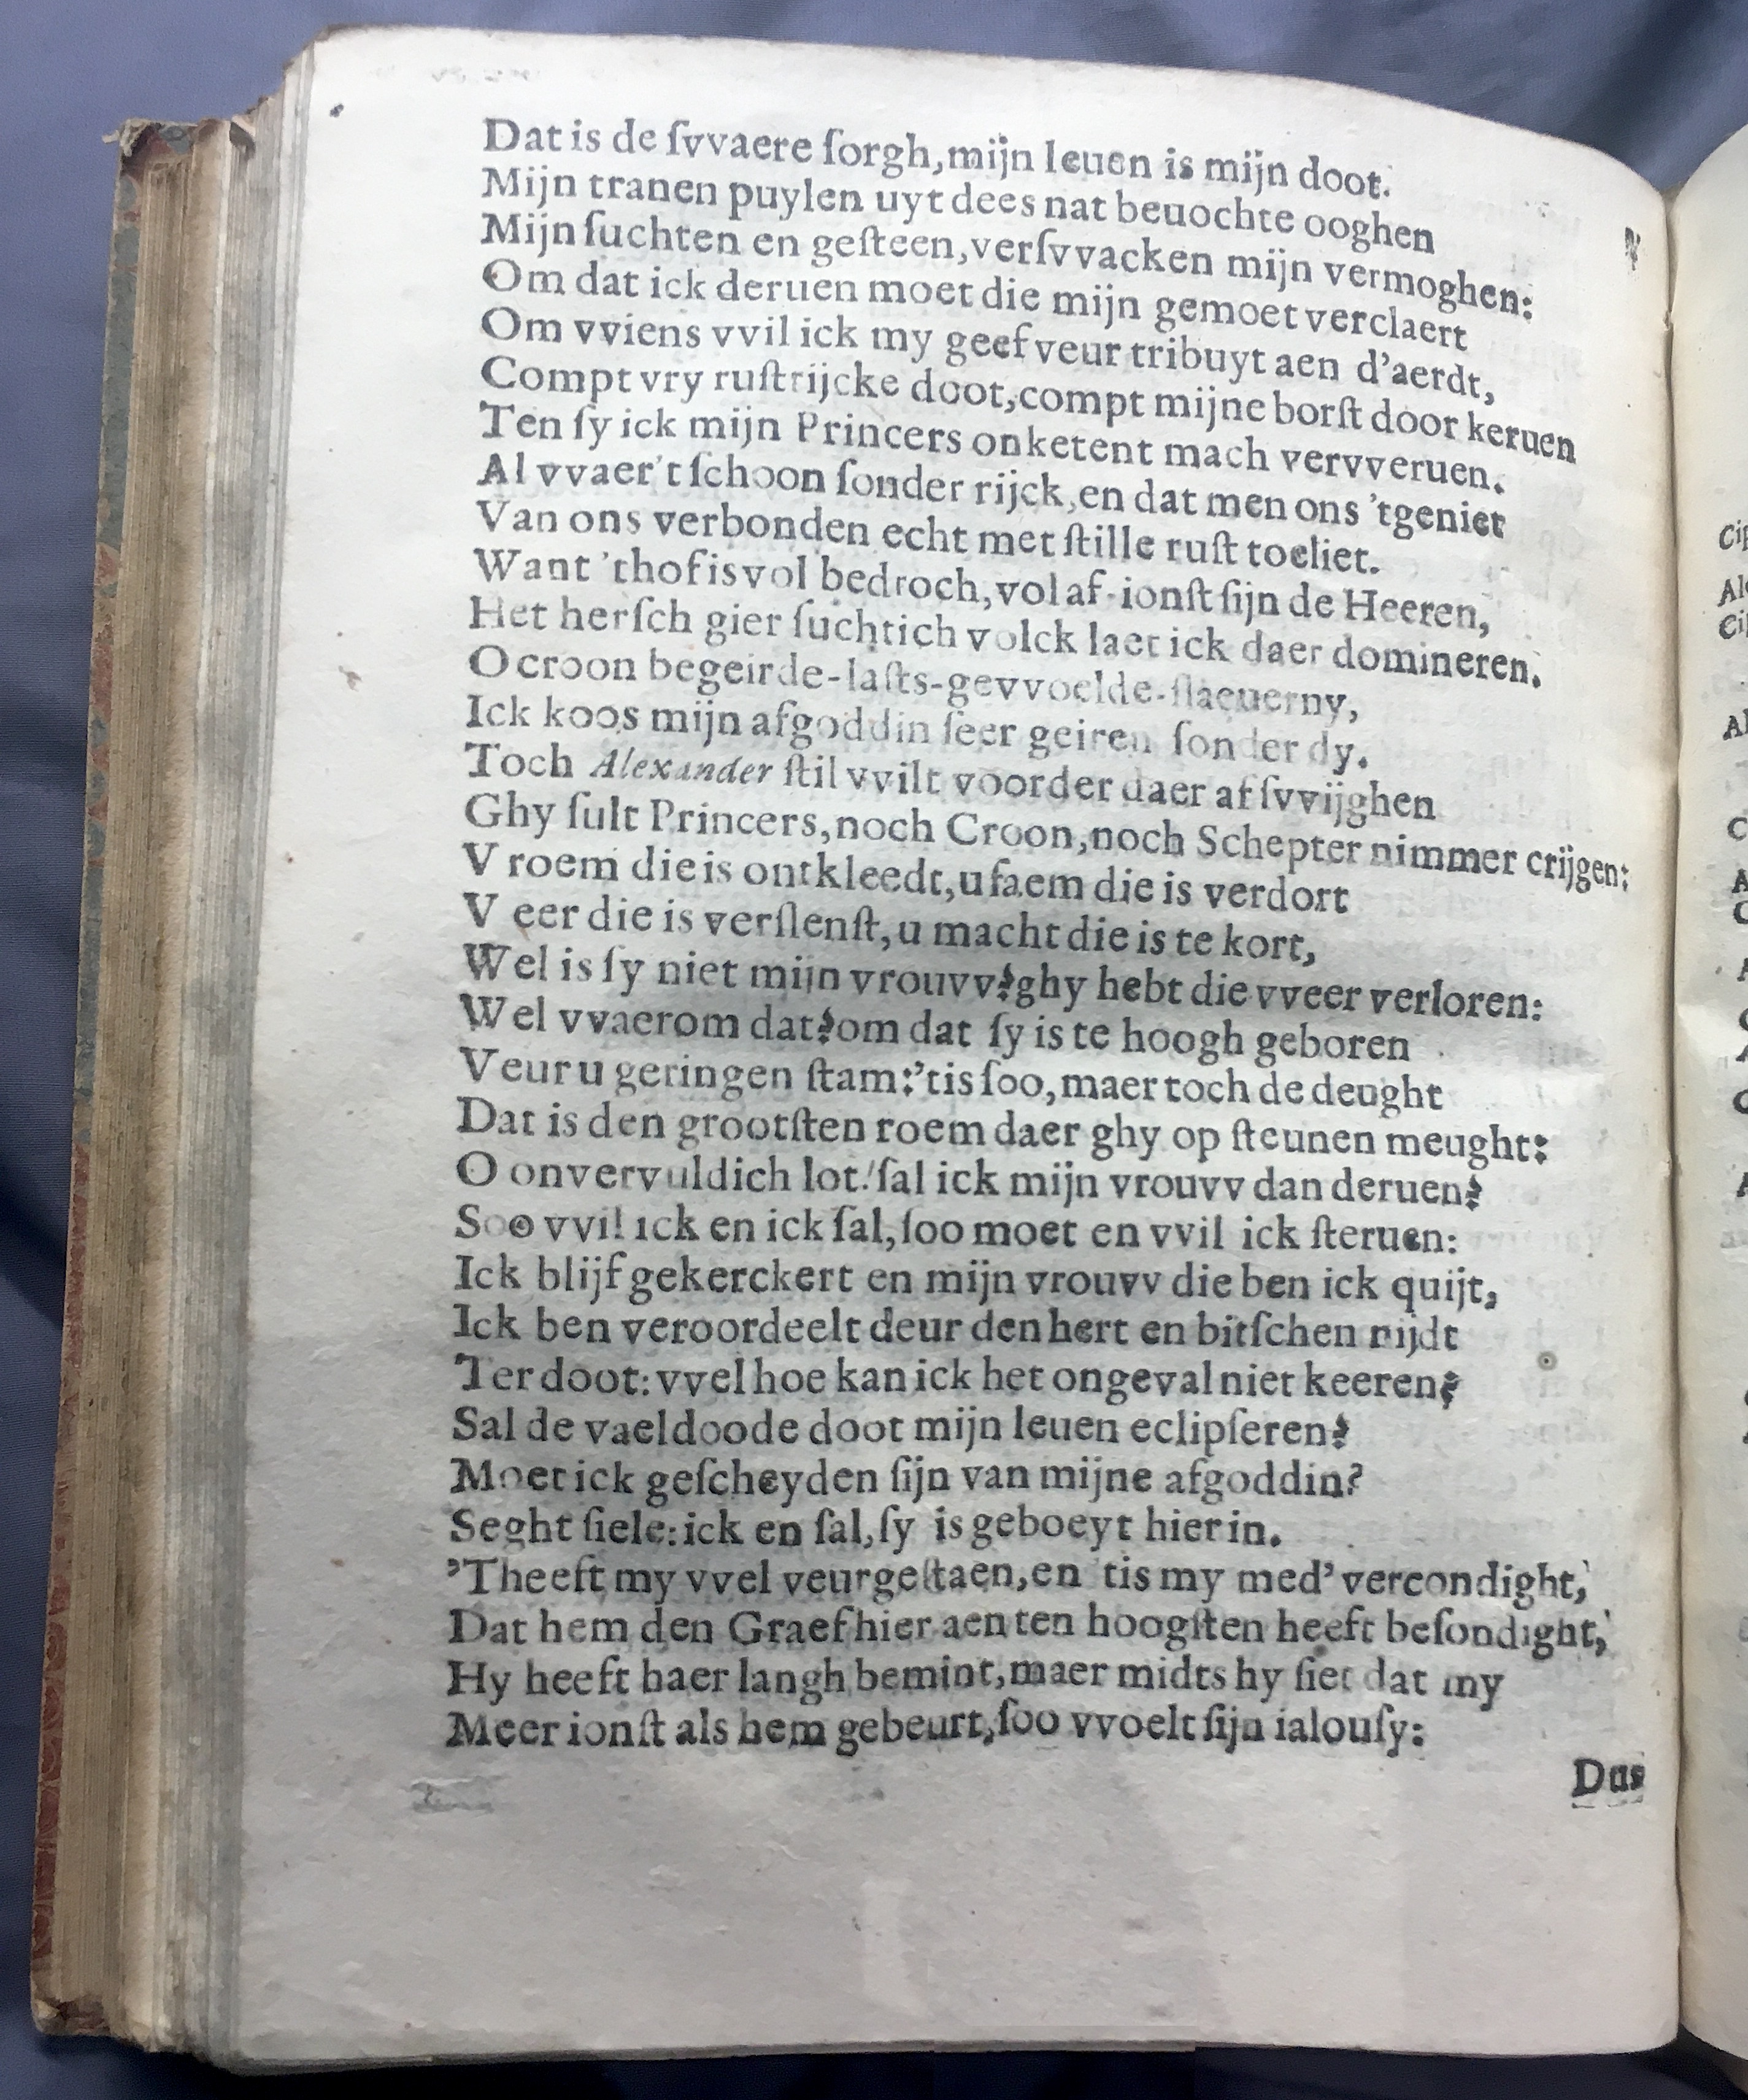 Dat is de ſvvaere ſorgh, mijn leuen is mijn doot.
Mijn tranen puylen uyt dees nat beuochte ooghen
Mijn ſuchten en geſteen, verſvvacken mijn vermoghen:
Om dat ick deruen moet die mijn gemoet verclaert
Om vviens vvil ick my geef veur tribuyt aen d'aerdt,
Compt vry ruſtrijcke doot, compt mijne borſt door keruen
Ten ſy ick mijn Princers onketent mach vervveruen.
Al vvaer't ſchoon ſonder rijck, en dat men ons 'tgeniet
Van ons verbonden echt met ſtille ruſt toeliet.
Want 'thof is vol bedroch, vol af-ionſt ſijn de Heeren,
Het herſch gier ſuchtich volck laet ick daer domineren.
O croon begeirde-laſts-gevvoelde-ſlaeuerny,
Ick koos mijn afgoddin ſeer geiren ſonder dy.
Toch Alexander ſtil vvilt voorder daer af ſvvijghen
Ghy ſult Princers, noch Croon, noch Schepter nimmer crijgen:
V roem die is ontkleedt, u faem die is verdort
V eer die is verſlenſt, u macht die is te kort,
Wel is ſy niet mijn vrouvv? ghy hebt die vveer verloren:
Wel vvaerom dat? om dat ſy is te hoogh geboren
Veur u geringen ſtam: 'tis ſoo, maer toch de deught
Dat is den grootſten roem daer ghy op ſteunen meught:
O onvervuldich lot! ſal ick mijn vrouvv dan deruen?
Soo vvil ick en ick ſal, ſoo moet en vvil ick ſteruen:
Ick blijf gekerckert en mijn vrouvv die ben ick quijt,
Ick ben veroordeelt deur den hert en bitſchen nijdt
Ter doot: vvel hoe kan ick het ongeval niet keeren?
Sal de vaeldoode doot mijn leuen eclipſeren?
Moet ick geſcheyden ſijn van mijne afgoddin?
Seght ſiele: ick en ſal, ſy is geboeyt hier in.
'Theeft my vvel veurgeſtaen, en tis my med' vercondight,
Dat hem den Graef hier aen ten hoogſten heeft beſondight,
Hy heeft haer langh bemint, maer midts hy ſiet dat my
Meer ionſt als hem gebeurt, ſoo vvoelt ſijn ialouſy:
Dus